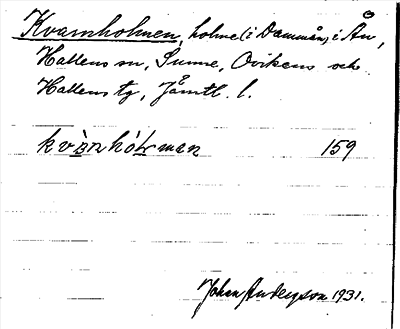 Kvarnholmen, holme (i Dammån) i Ån,
Hallens sn, Sunne, Ovikens och
Hallens tg, Jämtl. l.
kvànhólman 159
Johan Anderson 1931.